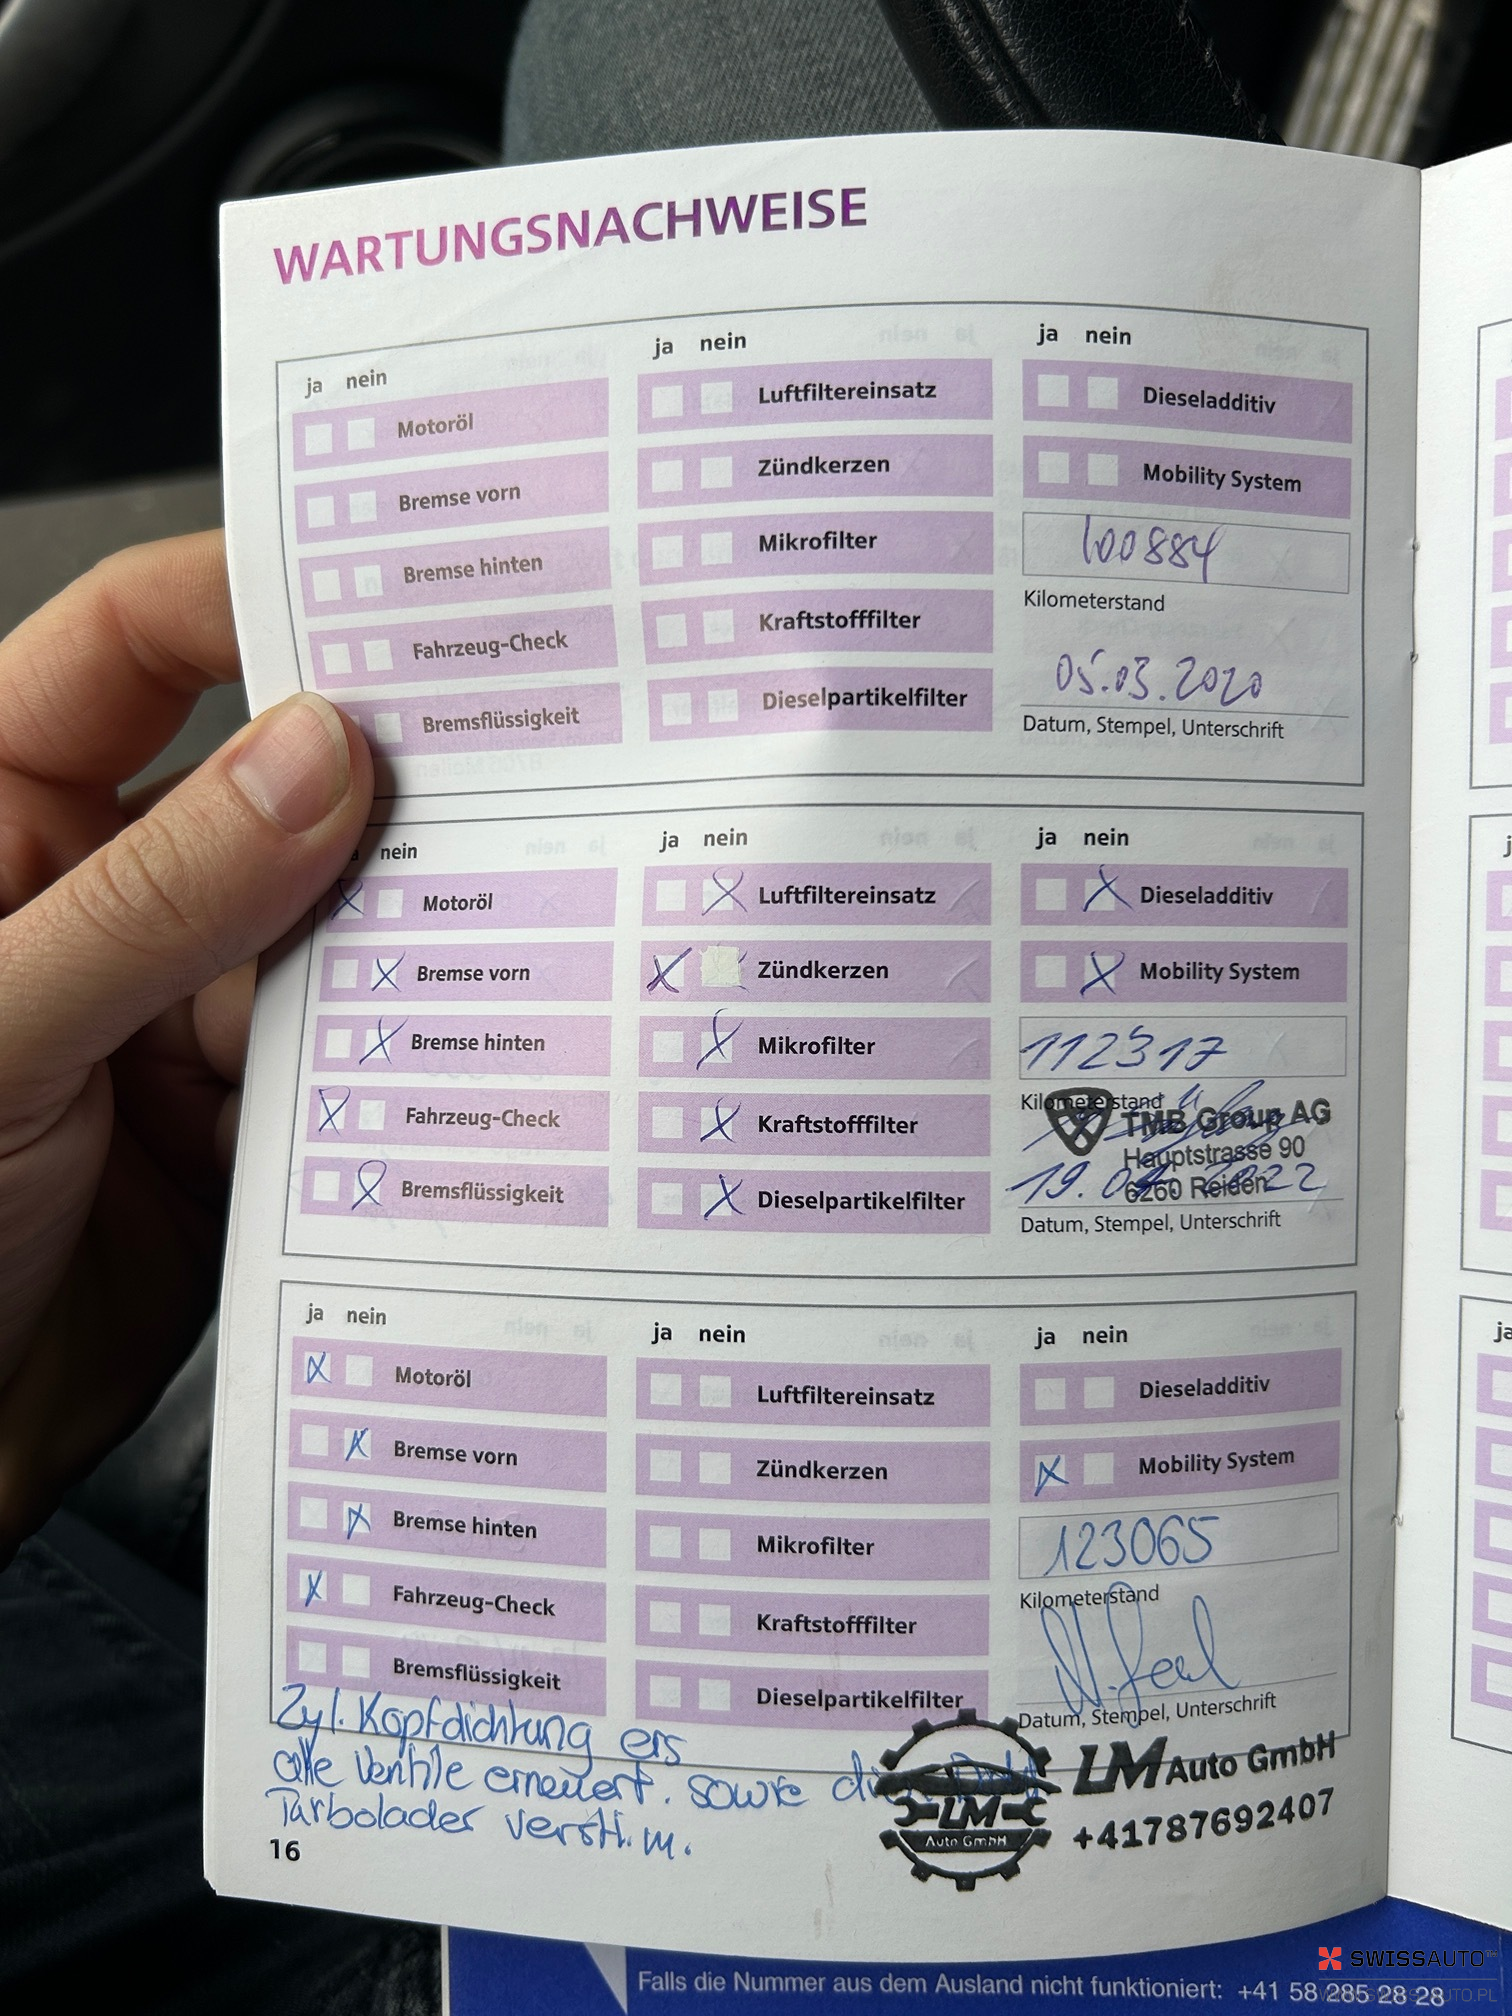 WARTUNGSNACHWEISE
ja nein
Motoröl
Bremse vorn
Bremse hinten
Fahrzeug-Check
Bremsflüssigkeit
ja nein
Luftfiltereinsatz
Zündkerzen
Mikrofilter
Kraftstofffilter
Dieselpartikelfilter
ja nein
Dieseladditiv
Mobility System
100884
Kilometerstand
05.03.2020
Datum, Stempel, Unterschrift
nein
Motoröl
Bremse vorn
Bremse hinten
Fahrzeug-Check
Bremsflüssigkeit
ja nein
Luftfiltereinsatz
Zündkerzen
Mikrofilter
Kraftstofffilter
Dieselpartikelfilter
ja nein
Dieseladditiv
Mobility System
112317
Kilometerstand
TMB Group AG
Hauptstrasse 90
6260 Reiden
Datum, Stempel, Unterschrift
ja nein
Motoröl
Bremse vorn
Bremse hinten
Fahrzeug-Check
Bremsflüssigkeit
ja nein
Luftfiltereinsatz
Zündkerzen
Mikrofilter
Kraftstofffilter
Dieselpartikelfilter
ja nein
Dieseladditiv
Mobility System
123065
Kilometerstand
Datum, Stempel, Unterschrift
Zyl. Kopfdichtung ers
alle Ventile erneuert. sowie
Turbolader
LM Auto GmbH
+41787692407
LM
Auto GmbH
16
Falls die Nummer aus dem Ausland nicht funktioniert: +41 58 285 28 28
SWISSAUTO